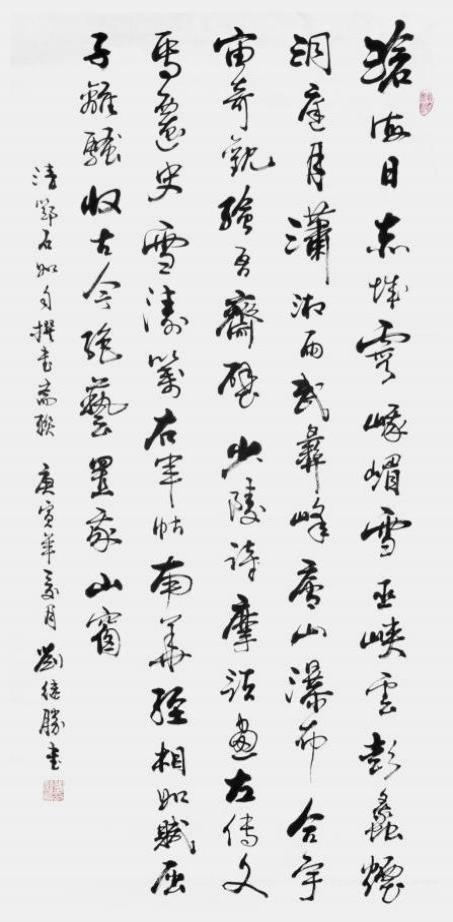 滄海日赤城霞峨嵋雪巫峽雲彭蠡煙
洞庭月瀟湘雨武彝峰廬山瀑布合宇
宙奇觀繪吾齋壁少陵詩摩詰畫左傳文
馬遷史雪濤箋右軍帖南華經相如賦屈
子離騷收古今絕藝置我山窗
清鄧石如自撰書齋聯 庚寅年夏月 劉繼勝書